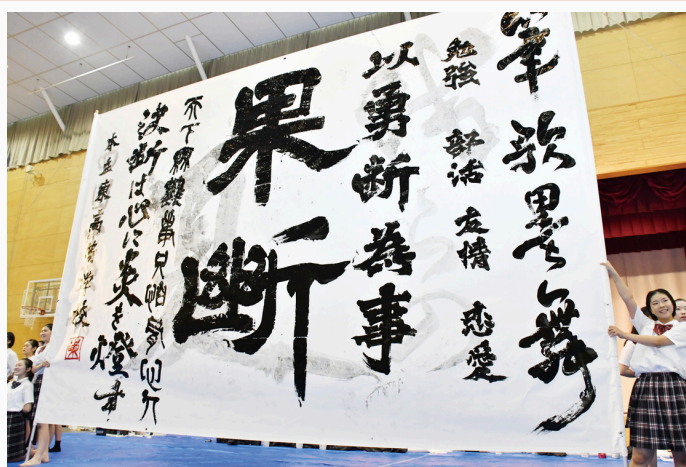 筆歌墨舞
勉強 部活 友情 恋愛
以勇断為事
果断
天下無難事只怕有心人
決断は心に炎を燈す
本庄東高等学校